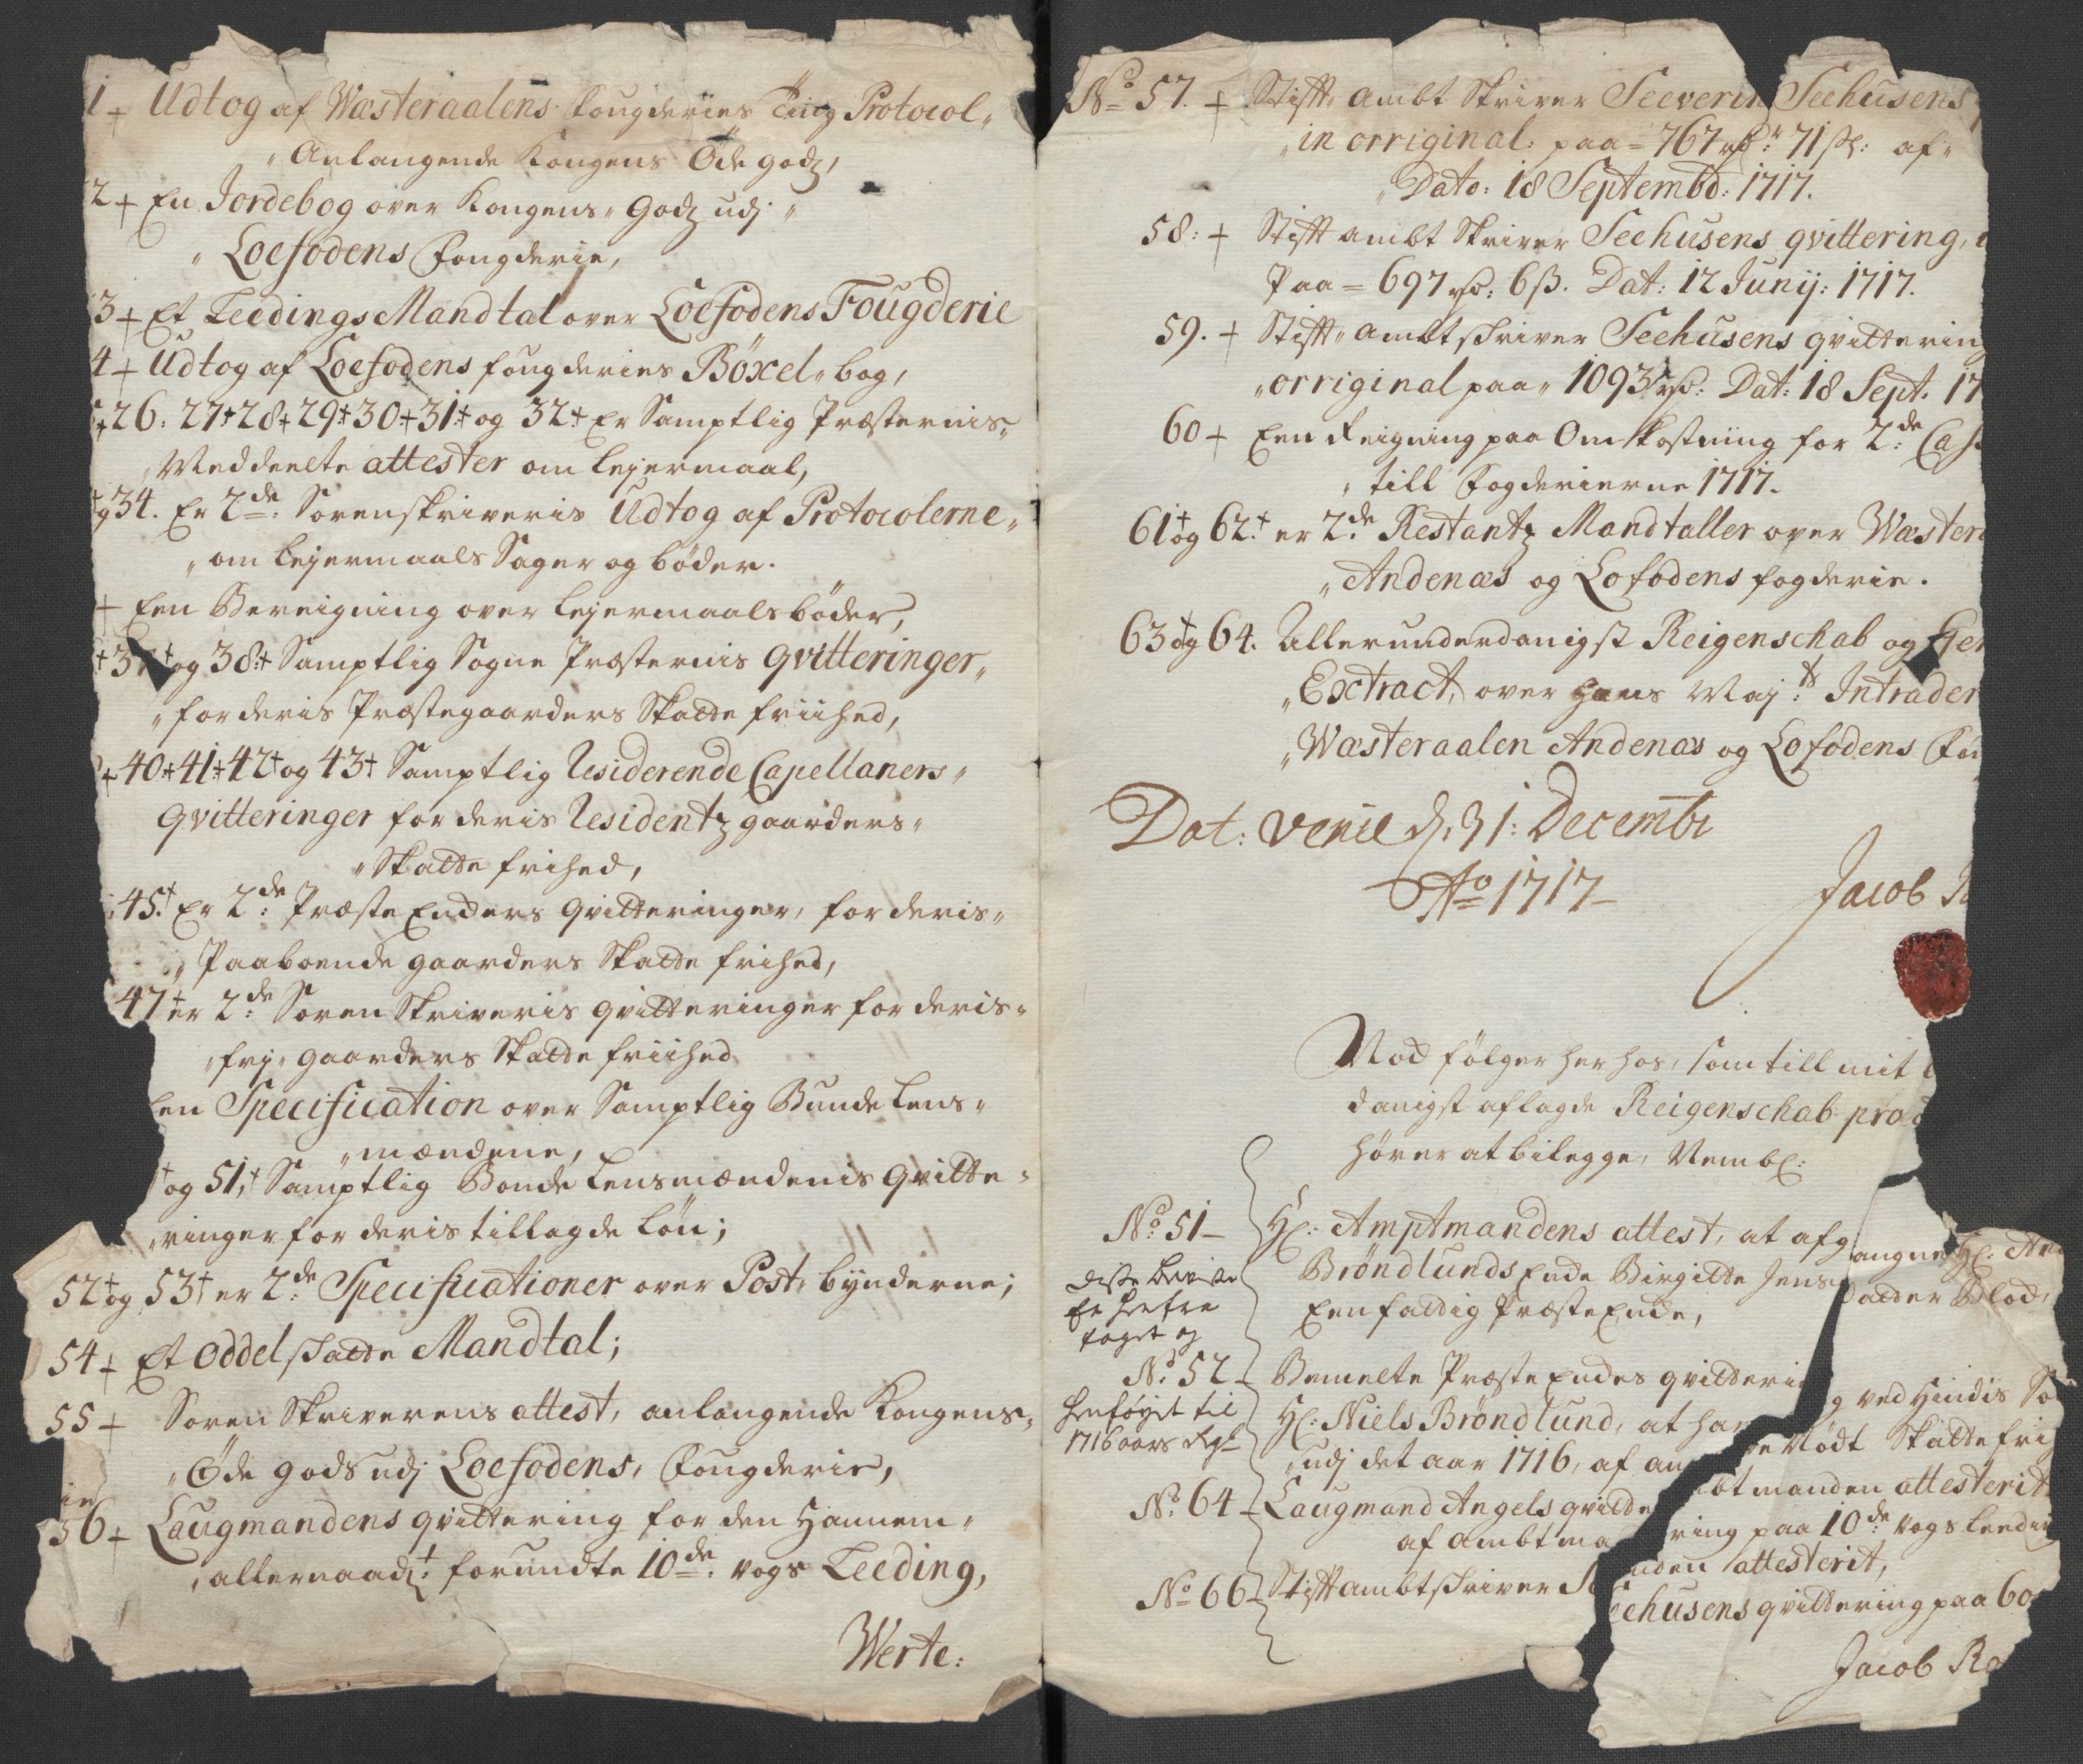 1 + Udtog af Wæsteraalens fougderies Ting Protocol„
„Anlangende Kongens Öde godz,
2 + En Jordebog over Kongens„ Godz udj„
„Loefodens Fougderie,
3 + Et Leedings Mandtal over Loefodens Fougderie
4 + Udtog af Loefodens fougderies Böxel„ bog,
+ 26: 27 + 28 + 29 + 30 + 31 + og 32 + Er Samptlig Præsternis„
„Meddeelte attester om lejermaal,
g 34. Er 2de: Sorenskriveris Udtog af Protocolerne„
„om lejermaals Sager og böder.
+ Een Bereigning over lejermaals böder,
+ 37 + og 38 + Samptlig Sogne Præsternis qvitteringer„
„for deris Præstegaarders Skatte friihed,
+ 40 + 41 + 42 + og 43 + Samptlig Residerende Capellaners„
qvitteringer for deris Residentz gaarders„
„Skatte frihed,
45 + Er 2de: Præste Enckers qvitteringer, for deris„
„Paaboende gaarders Skatte frihed,
47 + er 2de: Soren Skriveris qvitteringer for deris„
„frj„ gaarders Skatte friihed
Een Specification over Samptlig Bunde Lens„
„mændene,
+ og 51 + Samptlig Bonde Lensmændenis qvitte„
„ringer for deris tillagde Lön;
52 + og 53 + er 2de: Specificationer over Post„ bynderne;
54 + Et Oddel skatte Mandtal;
55 + Soren Skriverens attest, anlangende Kongens„
„Öde gods udj Loefodens, Fougderie,
56 + Laugmandens qvittering for den Hannem„
„allernaadt: forundte 10de: vogs Leeding,
Werte:
No 57. + Stift„ ambt Skriver Seeverin Seehusens
„in orriginal: paa = 767 rdr: 71 sk: af„
„Dato: 18 Septembd: 1717.
58: + Stift ambt Skriver Seehusens qvittering,
Paa = 697 rdr: 6 ß. Dat: 12 Junij: 1717.
59. + Stift„ ambtskriver Seehusens qvittering
„orriginal paa„ 1093 rdr: Dat: 18 Sept. 17
60 + Een Reigning paa Omkostning for 2de: Ca
„till Fogderierne 1717.
61 + og 62 + er 2de Restantz Mandtaller over Wæster
„Andenæs og Lofodens fogderie.
63 + og 64. Allerunderdanigst Reigenschab og Gen
„Extract, over Hans Maj:ts Intrader
„Wæsteraalen Andenæs og Lofodens Fou
Dat: Venie d: 31: Decembr
Ao 1717
Jacob R
Nock fölger her hos, som till mit
danigst aflagde Reigenschab pro
hörer at bilegge, Nembl:
No 51 – Hr: Amptmandens attest, at afgangne Hr: An
Bröndlunds Encke Birgitte Jensdatter Blod,
Een fattig Præste Encke,
disse beviste
Er herfra
taget og
No 52 – Bemelte Præste Enckes qvittering ved Hindis Sö
Hr: Niels Bröndlund, at have Nödt Skatte fri
„udj det aar 1716, af ambtmanden attesterit
henföyet til
1716 aars Rgsk
No 64 – Laugmand Angels qvittering paa 10de: vogs leeding
af ambtmanden attesterit,
No 66 – Stift ambtskriver Seehusens qvittering paa 60
Jacob Ra